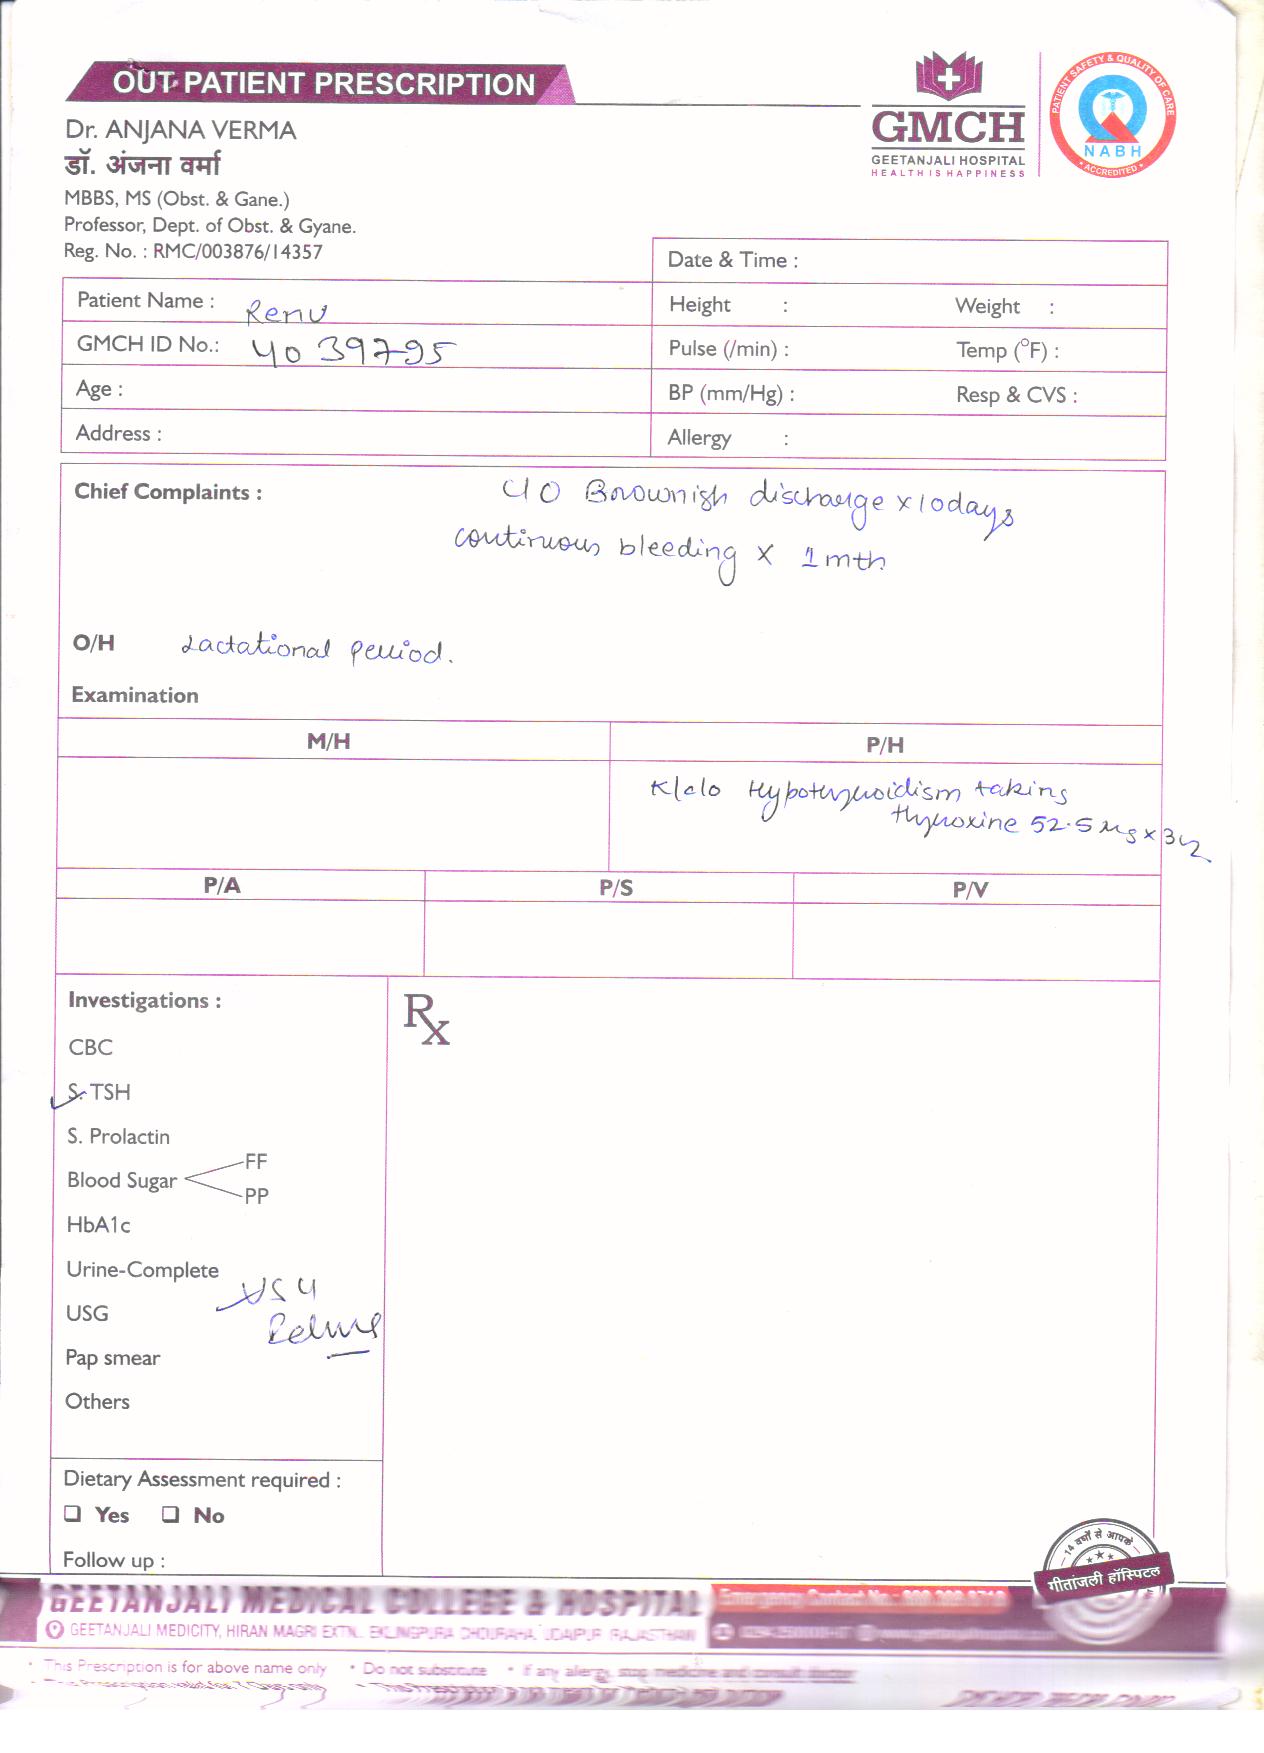 OUT PATIENT PRESCRIPTION
GMCH
GEETANJALI HOSPITAL
HEALTH IS HAPPINESS
PATIENT SAFETY & QUALITY OF CARE
NABH
ACCREDITED
Dr. ANJANA VERMA
डॉ. अंजना वर्मा
MBBS, MS (Obst. & Gane.)
Professor, Dept. of Obst. & Gyane.
Reg. No. : RMC/003876/14357
Date & Time :
Patient Name : Renu
Height : Weight :
GMCH ID No.: 4039795
Pulse (/min) : Temp (°F) :
Age :
BP (mm/Hg) : Resp & CVS :
Address :
Allergy :
Chief Complaints : Brownish discharge x 10days
continuous bleeding x 1 mth
O/H Lactational period.
Examination
M/H P/H
K/c/o Hypothyroidism taking
thyroxine 52.5 µg x 3
P/A P/S P/V
Investigations :
Rx
CBC
S. TSH
S. Prolactin
Blood Sugar FF
PP
HbA1c
Urine-Complete
USG
Pap smear
Others
Dietary Assessment required :
Yes No
Follow up :
14 वर्षों से आपके
गीतांजली हॉस्पिटल
GEETANJALI MEDICAL COLLEGE & HOSPITAL
Emergency Contact No.:
GEETANJALI MEDICITY, HIRAN MAGRI EXTN., EKLINGPURA CHOURAHA, UDAIPUR RAJASTHAN
• This Prescription is for above name only • Do not substitute • If any allergy, stop medicine and consult doctor